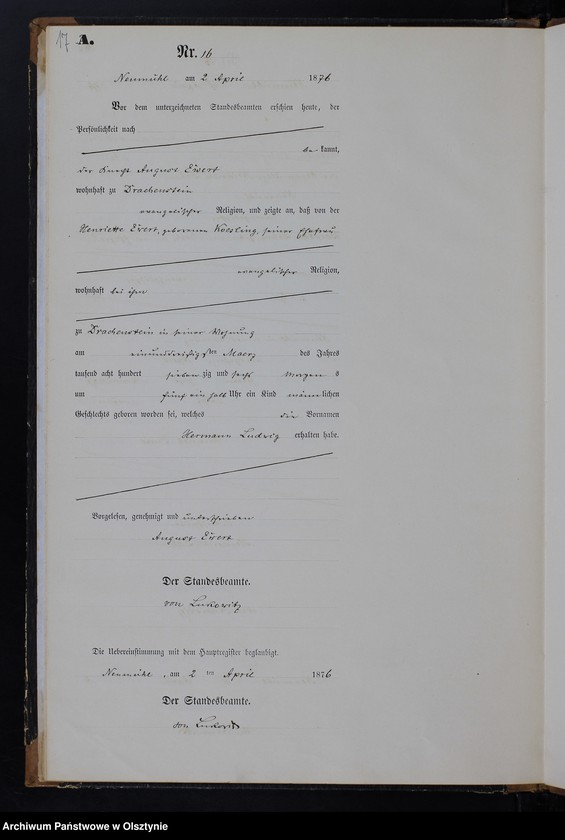 17
A.
Nr. 16
Neumühl am 2 April 1876
Vor dem unterzeichneten Standesbeamten erschien heute, der
Persönlichkeit nach
be kannt,
der Knecht August Ewert
wohnhaft zu Drachenstein
evangelischer Religion, und zeigte an, daß von der
Henriette Ewert, geborenen Koesling, seiner Ehefrau
evangelischer Religion,
wohnhaft bei ihm
zu Drachenstein in seiner Wohnung
am einunddreißigsten Maerz des Jahres
tausend acht hundert sieben zig und sechs Morgen s
um fünf ein halb Uhr ein Kind männlichen
Geschlechts geboren worden sei, welches die Vornamen
Hermann Ludwig erhalten habe.
Vorgelesen, genehmigt und unterschrieben
August Ewert
Der Standesbeamte.
von Lukowitz
Die Uebereinstimmung mit dem Hauptregister beglaubigt.
Neumühl, am 2 ten April 1876
Der Standesbeamte.
von Lukowitz
Archiwum Państwowe w Olsztynie